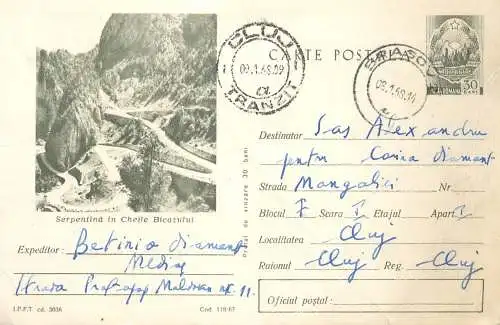 CLUJ
09.1.68.09
a
TRANZIT
CARTE POSTALA
BRASOV
50
BANI
Serpentină în Cheile Bicazului
Prețul de vînzare 30 bani
Expeditor: Betinia diamant
Mediaș
Strada Protopop Moldovan nr. 11.
I.P.F.T. cd. 3036
Cod. 118-67
Destinatar Sas Alexandru
pentru Corina diamant
Strada Mangaliei Nr.
Blocul F Scara I Etajul Apart. 1
Localitatea Cluj
Raionul Cluj Reg. Cluj
Oficiul poștal: